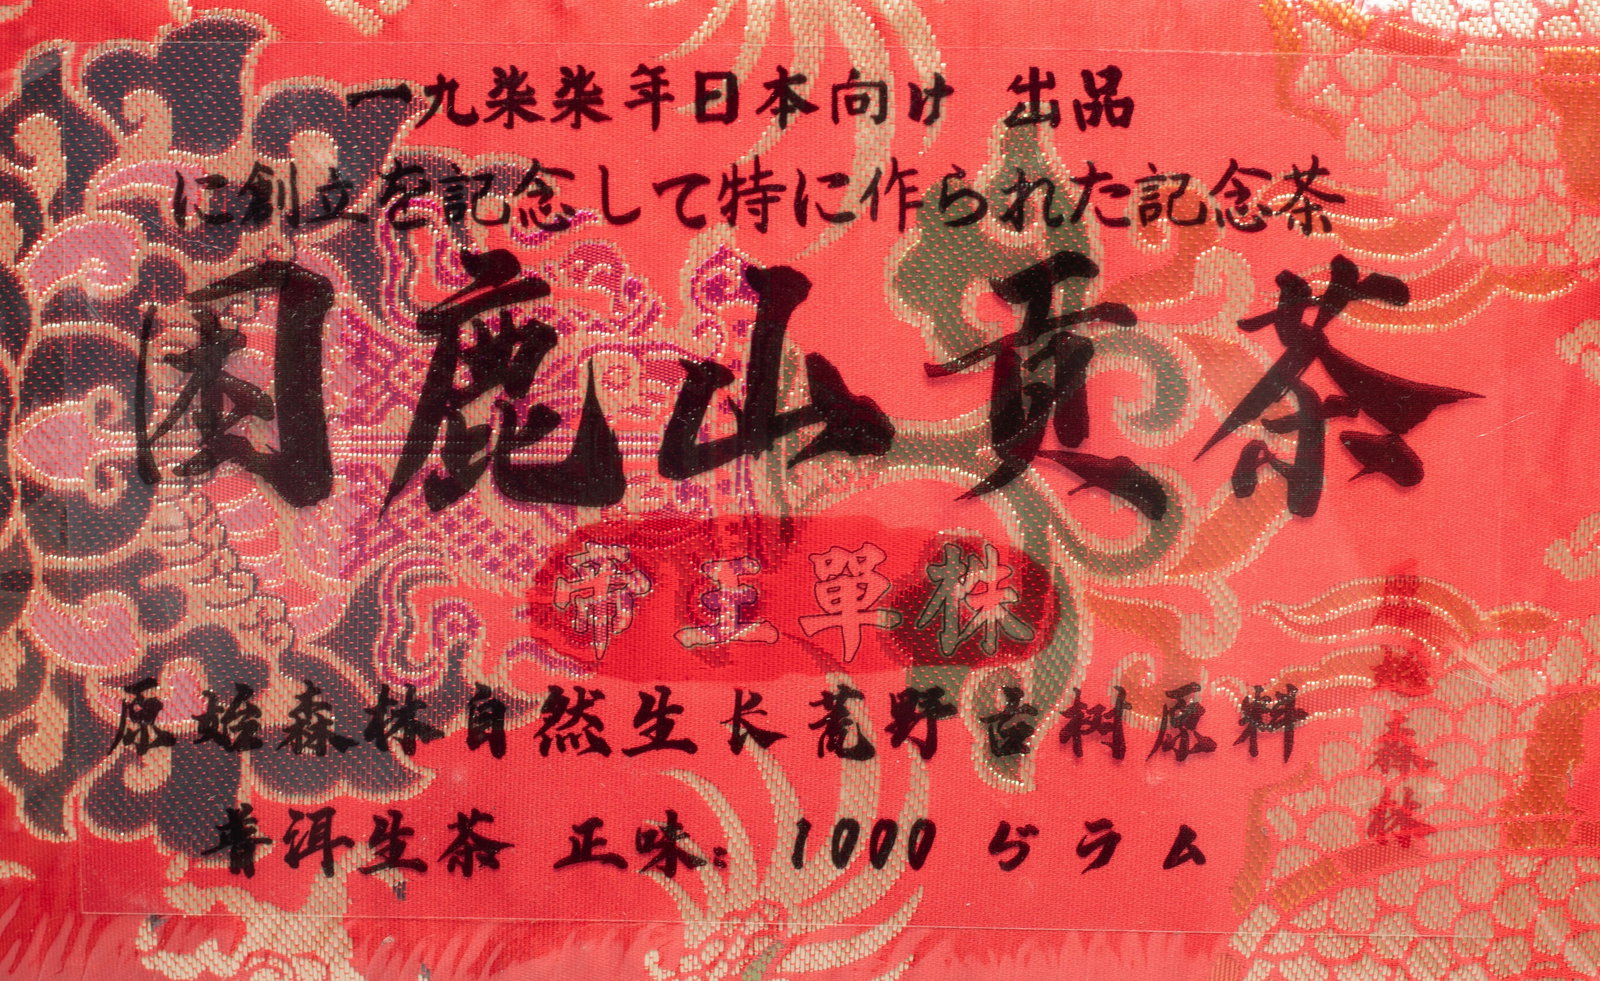 一九柒柒年日本向け 出品
に創立を記念して特に作られた記念茶
困鹿山贡茶
帝王單株
原始森林自然生长荒野古树原料
普洱生茶 正味：1000 ぢラム